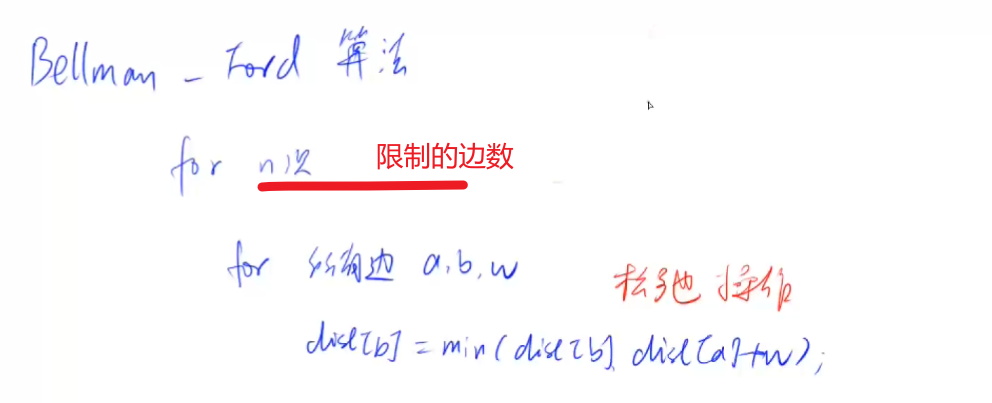 Bellman - Ford 算法
for n次 限制的边数
for 所有边 a,b,w
松弛操作
dist[b] = min(dist[b], dist[a]+w);